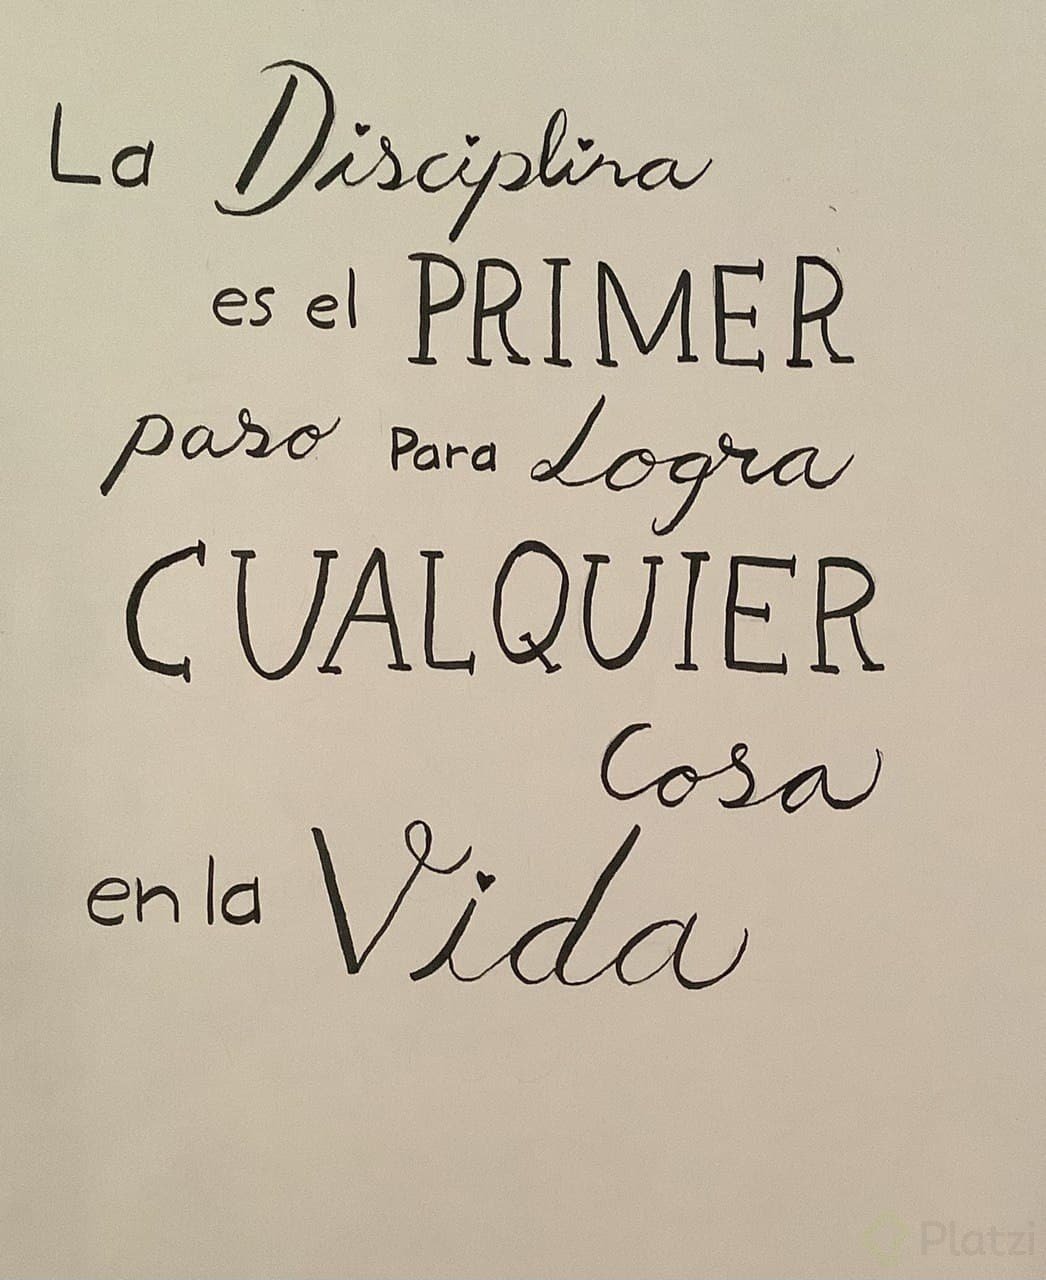 La Disciplina
es el PRIMER
paso Para Logra
CUALQUIER
Cosa
en la Vida
Platzi